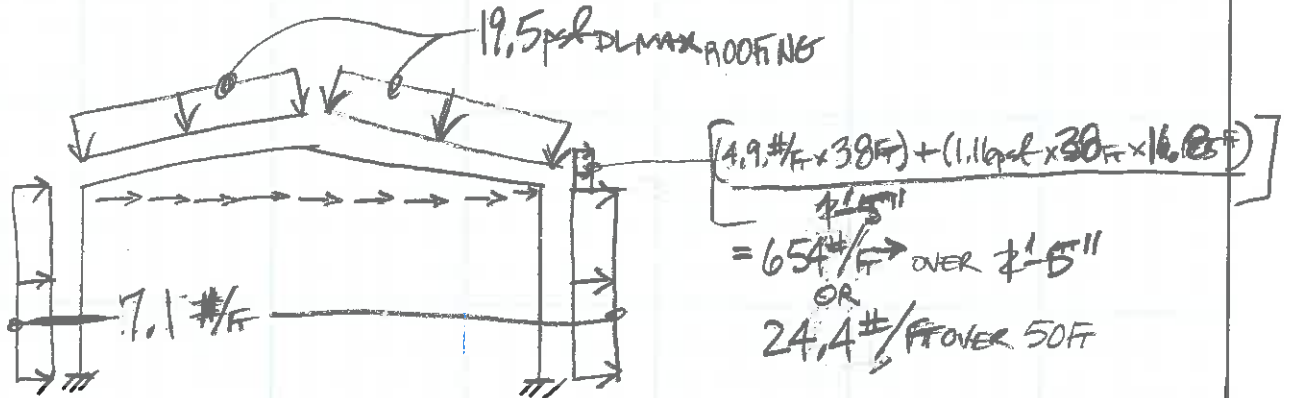 19.5 psf DL MAX ROOFING
[(4.9 #/FT x 38FT) + (1.16psf x 38FT x 16.83FT)]
1'-5"
= 654 #/FT → OVER 1'-5"
OR
7.1 #/FT
24.4 #/FT OVER 50FT